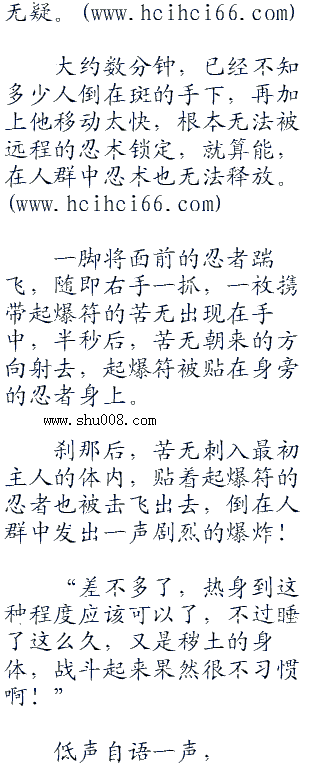 无疑。(www.hcihci66.com)
大约数分钟，已经不知
多少人倒在斑的手下，再加
上他移动太快，根本无法被
远程的忍术锁定，就算能，
在人群中忍术也无法释放。
(www.hcihci66.com)
一脚将面前的忍者踹
飞，随即右手一抓，一枚携
带起爆符的苦无出现在手
中，半秒后，苦无朝来的方
向射去，起爆符被贴在身旁
的忍者身上。
www.shu008.com
刹那后，苦无刺入最初
主人的体内，贴着起爆符的
忍者也被击飞出去，倒在人
群中发出一声剧烈的爆炸！
“差不多了，热身到这
种程度应该可以了，不过睡
了这么久，又是秽土的身
体，战斗起来果然很不习惯
啊！”
低声自语一声，